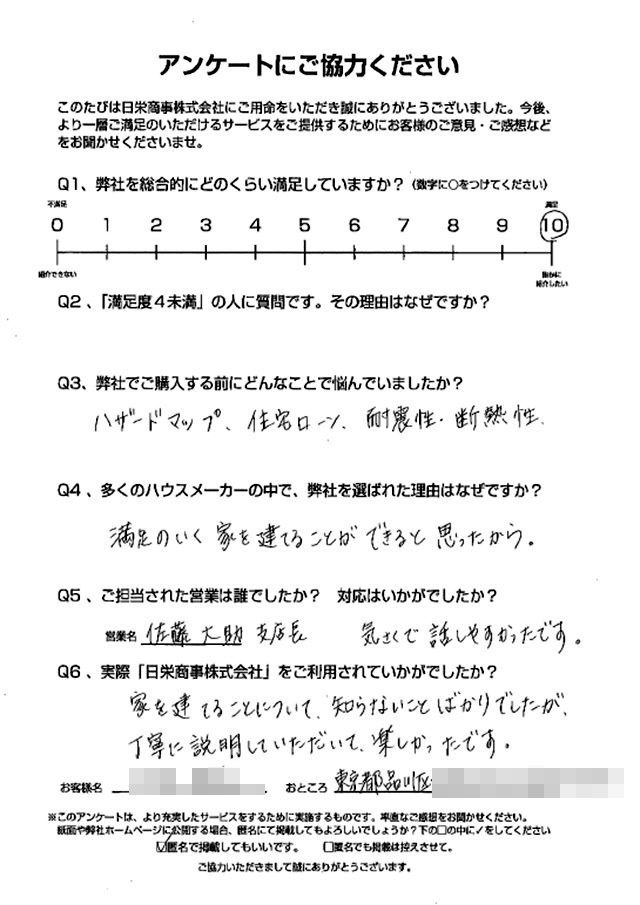 アンケートにご協力ください
このたびは日栄商事株式会社にご用命をいただき誠にありがとうございました。今後、
より一層ご満足のいただけるサービスをご提供するためにお客様のご意見・ご感想など
をお聞かせくださいませ。
Q1、弊社を総合的にどのくらい満足していますか？（数字に○をつけてください）
不満足 満足
0 1 2 3 4 5 6 7 8 9 10
紹介できない 誰かに
紹介したい
Q2、「満足度４未満」の人に質問です。その理由はなぜですか？
Q3、弊社でご購入する前にどんなことで悩んでいましたか？
ハザードマップ、住宅ローン、耐震性・断熱性、
Q4、多くのハウスメーカーの中で、弊社を選ばれた理由はなぜですか？
満足のいく家を建てることができると思ったから。
Q5、ご担当された営業は誰でしたか？ 対応はいかがでしたか？
営業名 佐藤大助支店長 気さくで話しやすかったです。
Q6、実際「日栄商事株式会社」をご利用されていかがでしたか？
家を建てることについて、知らないことばかりでしたが、
丁寧に説明していただいて、楽しかったです。
お客様名 おところ 東京都品川区
※このアンケートは、より充実したサービスをするために実施するものです。率直なご感想をお聞かせください。
紙面や弊社ホームページに公開する場合、匿名にて掲載してもよろしいでしょうか？下の□の中に✓をしてください
☑匿名で掲載してもいいです。 □匿名でも掲載は控えさせて。
ご協力いただきまして誠にありがとうございます。